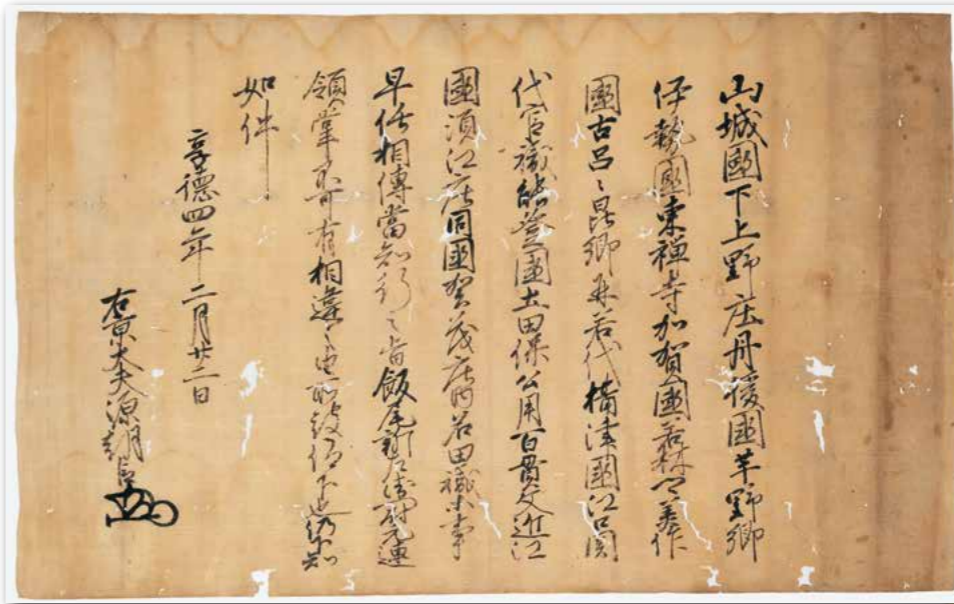 山城國下上野庄丹後國芋野郷
伊勢國東禅寺加賀國若林美作
國古呂〻昆郷若代攝津國江口関
代官職能登國土田保公用百貫文近江
國須江庄同國賀茂庄内名田職等事
早任相傳當知行之旨飯尾新左衛門尉元連
領掌不可有相違之由所被仰下也仍下知
如件
享德四年二月廿二日
右京大夫源朝臣